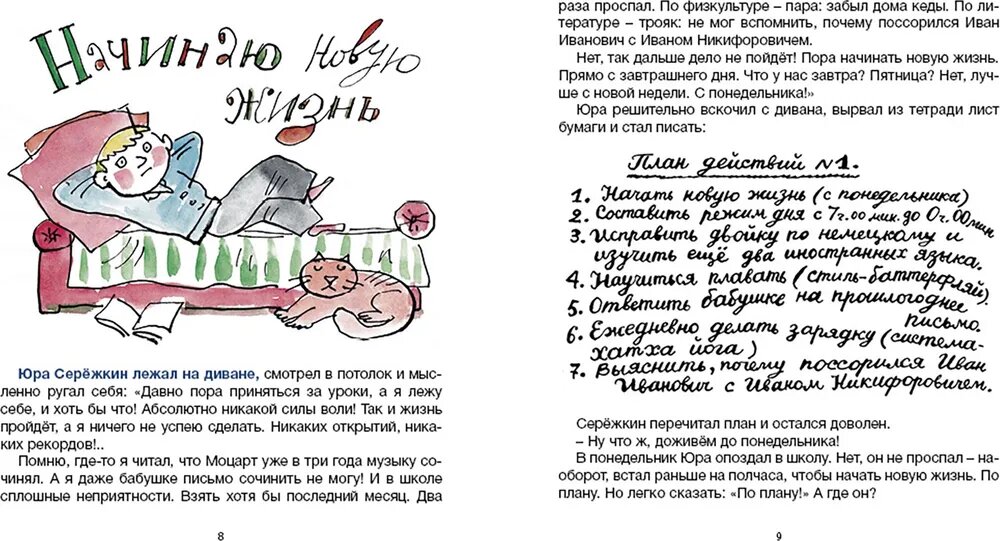 Начинаю новую
жизнь
Юра Серёжкин лежал на диване, смотрел в потолок и мыс-
ленно ругал себя: «Давно пора приняться за уроки, а я лежу
себе, и хоть бы что! Абсолютно никакой силы воли! Так и жизнь
пройдёт, а я ничего не успею сделать. Никаких открытий, ника-
ких рекордов!..
Помню, где-то я читал, что Моцарт уже в три года музыку со-
чинял. А я даже бабушке письмо сочинить не могу! И в школе
сплошные неприятности. Взять хотя бы последний месяц. Два
8
раза проспал. По физкультуре – пара: забыл дома кеды. По ли-
тературе – трояк: не мог вспомнить, почему поссорился Иван
Иванович с Иваном Никифоровичем.
Нет, так дальше дело не пойдёт! Пора начинать новую жизнь.
Прямо с завтрашнего дня. Что у нас завтра? Пятница? Нет, луч-
ше с новой недели. С понедельника!»
Юра решительно вскочил с дивана, вырвал из тетради лист
бумаги и стал писать:
План действий №1.
1. Начать новую жизнь (с понедельника)
2. Составить режим дня с 7 ч. 00 мин. до 0 ч. 00 мин
3. Исправить двойку по немецкому и
изучить ещё два иностранных языка.
4. Научиться плавать (стиль-баттерфляй)
5. Ответить бабушке на прошлогоднее
письмо.
6. Ежедневно делать зарядку (система-
хатха йога)
7. Выяснить, почему поссорился Иван
Иванович с Иваном Никифоровичем.
Серёжкин перечитал план и остался доволен.
– Ну что ж, доживём до понедельника!
В понедельник Юра опоздал в школу. Нет, он не проспал – на-
оборот, встал раньше на полчаса, чтобы начать новую жизнь. По
плану. Но легко сказать: «По плану!» А где он?
9